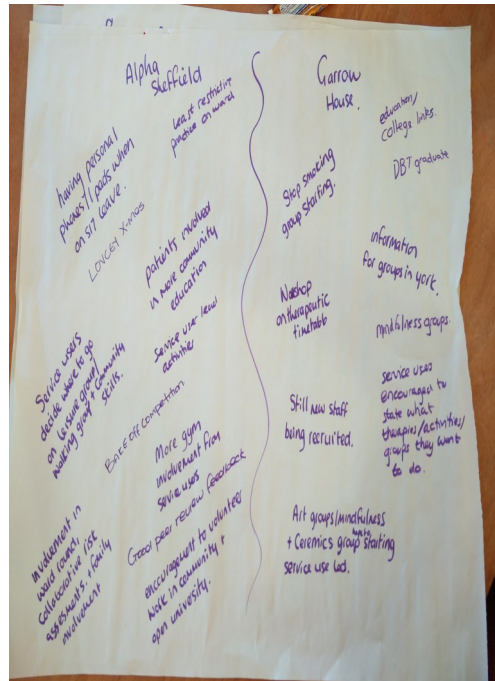 Alpha
Sheffield
Least restrictive
practice on ward
having personal
phones/ipads when
on S17 leave.
LOVELY X-mas
patients involved
in more community
education
Service user lead
activities
Service users
decide where to go
on Leisure group/
walking group + community
skills.
BAKE off competition
More gym
involvement from
service users
Good peer review feedback
encouragement to volunteer
work in community +
open university.
involvement in
ward round,
collaborative risk
assesments + family
involvement
Garrow
House.
education/
College links.
DBT graduate
Stop smoking
group starting.
information
for groups in york.
on therapeutic
timetable
mindfulness groups.
Still new staff
being recruited.
service users
encouraged to
state what
therapies/activities/
groups they want
to do.
Art groups/mindfulness
+ Ceramics group starting
service use led.